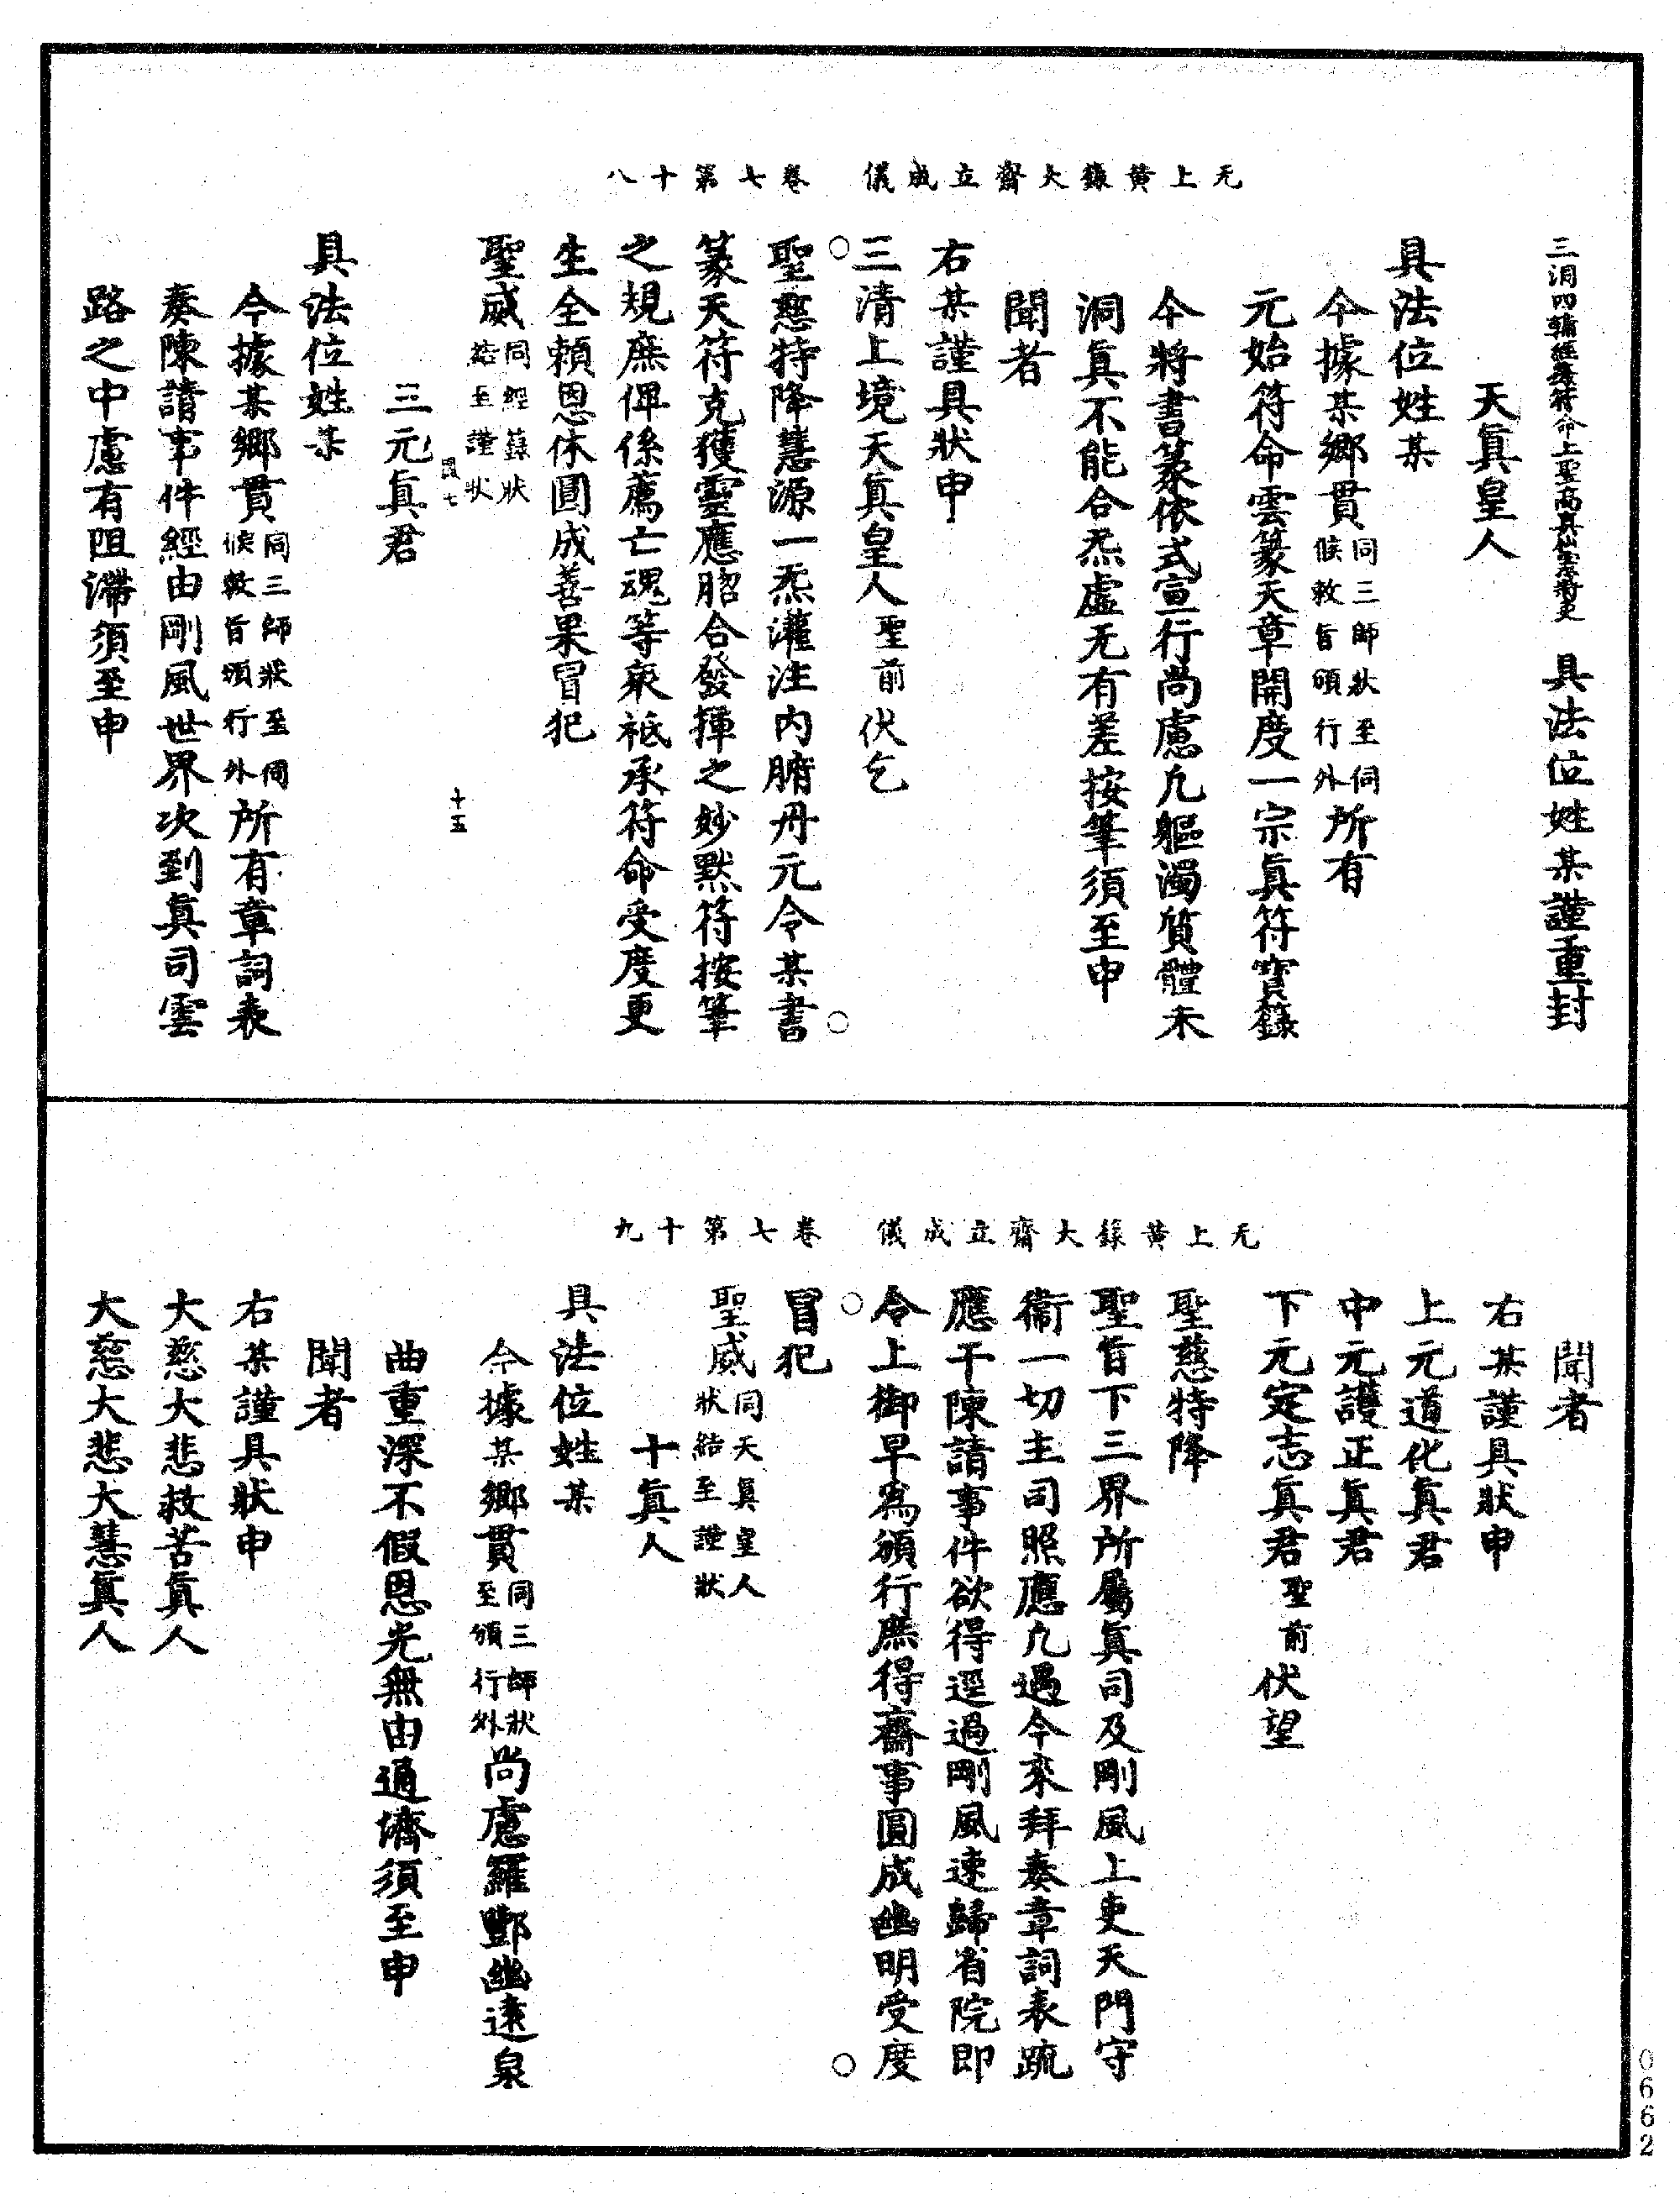 无上黃籙大齋立成儀　卷七第十八
三洞四輔經籙符命上聖高真仙靈將吏　具法位姓某謹重封
天真皇人
具法位姓某
今據某鄉貫同三師狀至伺候敕旨頒行外所有
元始符命雲篆天章開度一宗真符寶籙
今將書篆依式宣行尚慮凡軀濁質體未
洞真不能合炁虛无有差按筆須至申
聞者
右某謹具狀申
三清上境天真皇人聖前伏乞
聖慈特降慧源一炁灌注內腑丹元令某書
篆天符克獲靈應脗合發揮之妙默符按筆
之規庶俾係薦亡魂等衆祗承符命受度更
生全賴恩休圓成善果冒犯
聖威同經籙狀結至謹狀
三元真君
十五
具法位姓某
今據某鄉貫同三師狀至伺候敕旨頒行外所有章詞表
奏陳請事件經由剛風世界次到真司雲
路之中慮有阻滯須至申
无上黃籙大齋立成儀　卷七第十九
聞者
右某謹具狀申
上元道化真君
中元護正真君
下元定志真君聖前伏望
聖慈特降
聖旨下三界所屬真司及剛風上吏天門守
衞一切主司照應凡遇今來拜奏章詞表疏
應干陳請事件欲得逕過剛風速歸省院即
令上御早爲頒行庶得齋事圓成幽明受度
冒犯
聖威同天真皇人狀結至謹狀
十真人
具法位姓某
今據某鄉貫同三師狀至頒行外尚慮羅酆幽遠泉
曲重深不假恩光無由通濟須至申
聞者
右某謹具狀申
大慈大悲救苦真人
大慈大悲大慧真人
0662